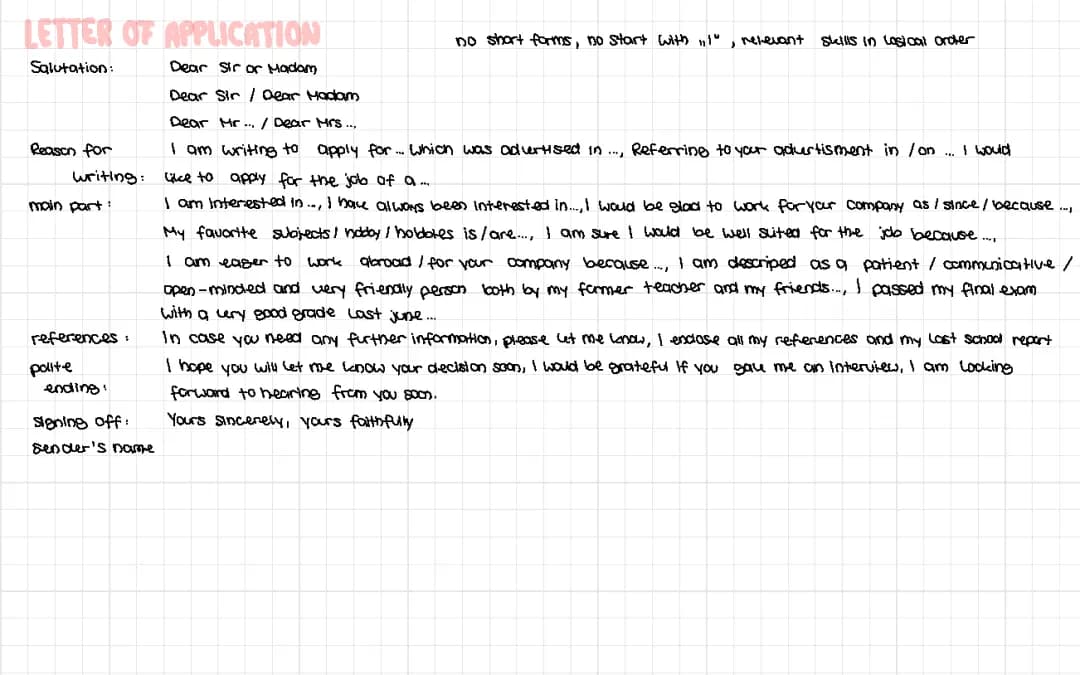 LETTER OF APPLICATION
no short forms, no start with „I“, relevant skills in logical order
Salutation: Dear Sir or Madam
Dear Sir / Dear Madam
Dear Mr... / Dear Mrs...
Reason for I am writing to apply for... which was advertised in ..., Referring to your advertisment in / on ... I would
writing: like to apply for the job of a ...
main part: I am interested in ..., I have always been interested in..., I would be glad to work for your company as / since / because ...,
My favorite subjects / hobby / hobbies is / are..., I am sure I would be well suited for the job because ...,
I am eager to work abroad / for your company because ..., I am descriped as a patient / communicative /
open-minded and very friendly person both by my former teacher and my friends..., I passed my final exam
with a very good grade last june ...
references: In case you need any further information, please let me know, I enclose all my references and my last school report
polite I hope you will let me know your decision soon, I would be grateful if you gave me an interview, I am looking
ending: forward to hearing from you soon.
signing off: Yours sincerely, yours faithfully
sender's name